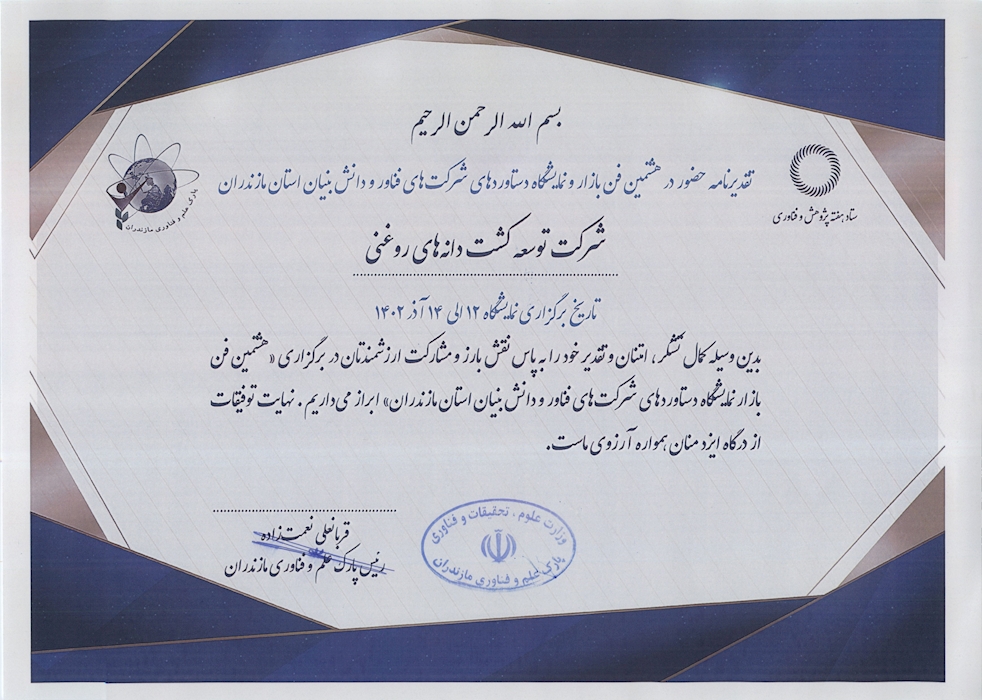 بسم الله الرحمن الرحیم
تقدیرنامه حضور در هشتمین فن بازار و نمایشگاه دستاوردهای شرکت‌های فناور و دانش بنیان استان مازندران
ستاد هفته پژوهش و فناوری
پارک علم و فناوری مازندران
شرکت توسعه کشت دانه‌های روغنی
تاریخ برگزاری نمایشگاه ۱۲ الی ۱۴ آذر ۱۴۰۲
بدین وسیله کمال تشکر، امتنان و تقدیر خود را به پاس نقش بارز و مشارکت ارزشمندتان در برگزاری «هشتمین فن
بازار نمایشگاه دستاوردهای شرکت‌های فناور و دانش بنیان استان مازندران» ابراز می‌داریم. نهایت توفیقات
از درگاه ایزد منان همواره آرزوی ماست.
وزارت علوم، تحقیقات و فناوری
پارک علم و فناوری مازندران
قربانعلی نعمت‌زاده
رئیس پارک علم و فناوری مازندران